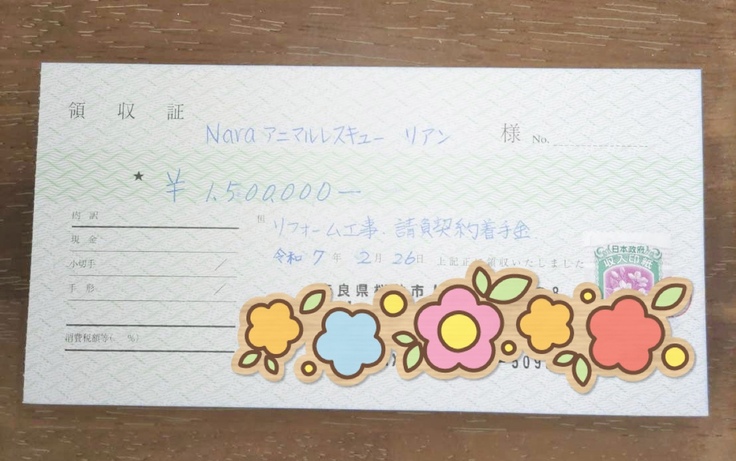 領収証
Nara アニマルレスキュー リアン 様 No.
★ ¥1,500,000―
内訳
現金
小切手 ／
手形 ／
消費税額等( %)
但 リフォーム工事・請負契約着手金
令和 7年 2月 26日 上記正に領収いたしました
日本政府
収入印紙
良県桜
市